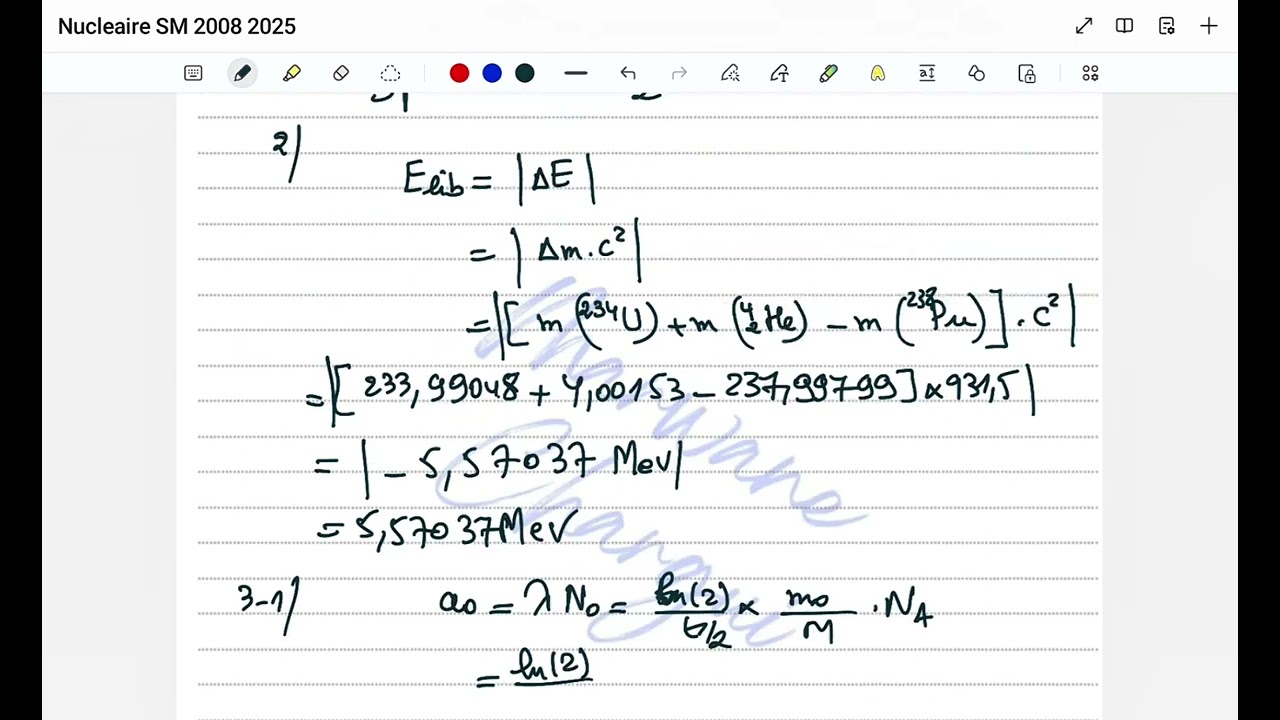 Nucleaire SM 2008 2025
2/
Elib = |ΔE|
= |Δm.c²|
= |[m(²³⁴U) + m(⁴₂He) − m(²³⁸Pu)].c²|
= |[233,99048 + 4,00153 − 237,99799] × 931,5|
= |− 5,57037 MeV|
= 5,57037 MeV
3-1/ a₀ = λ N₀ = ln(2)/t1/2 × m₀/M . N_A
= ln(2)
Marwane Chargui